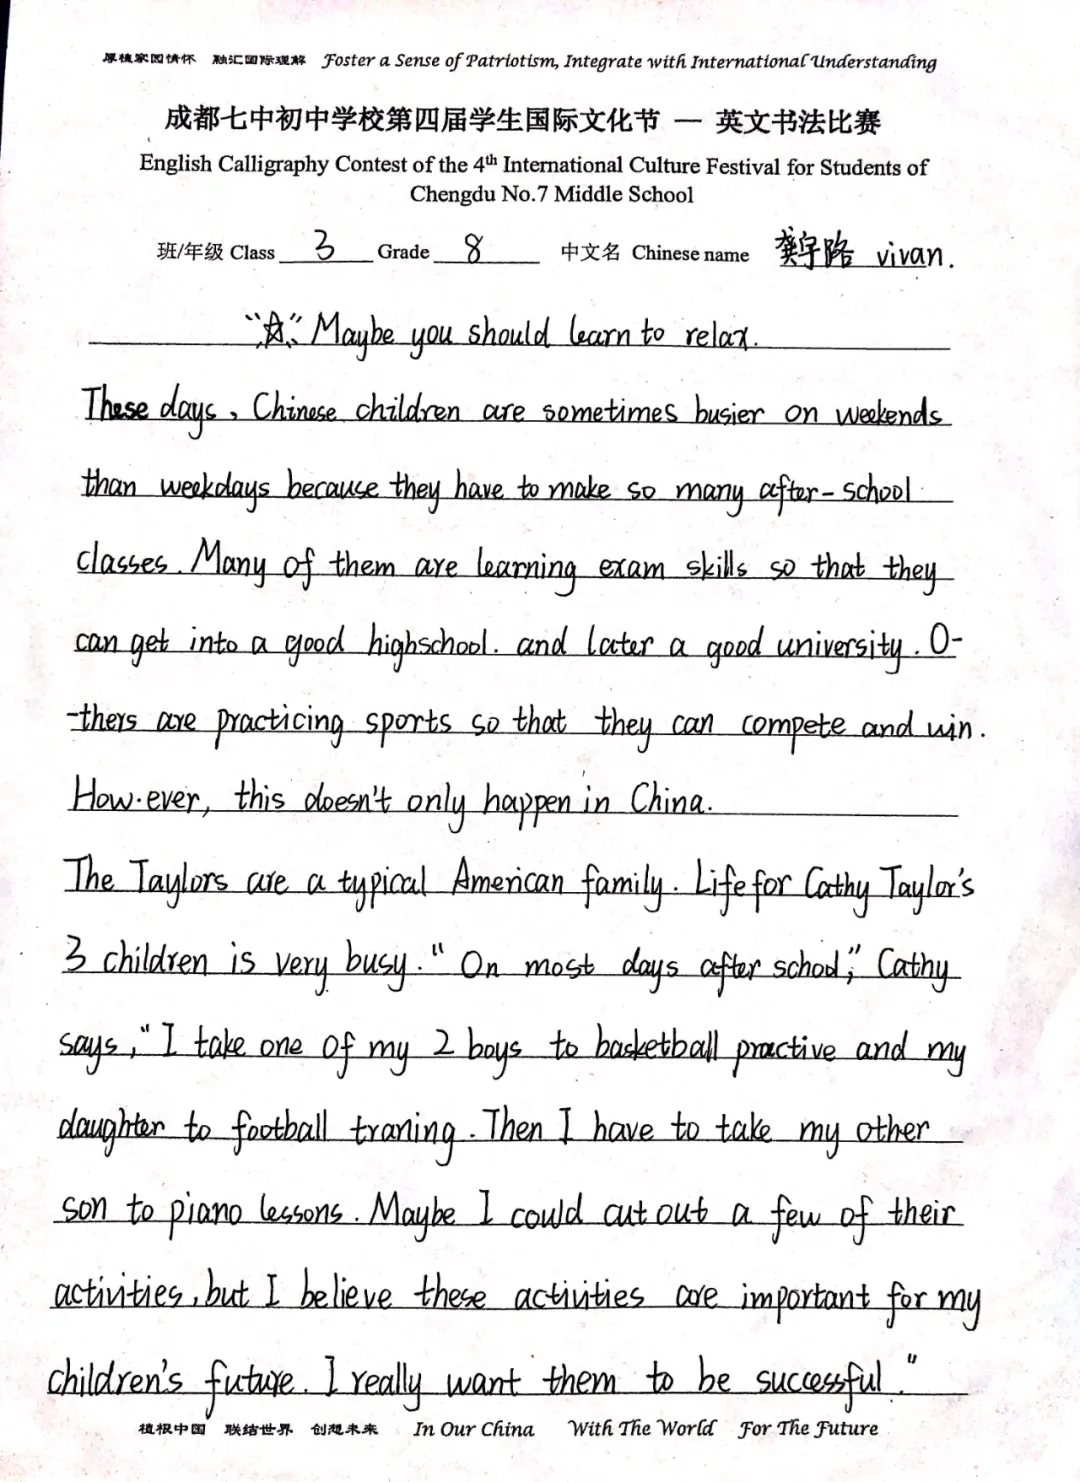 厚植家国情怀 融汇国际理解 Foster a Sense of Patriotism, Integrate with International Understanding
成都七中初中学校第四届学生国际文化节 — 英文书法比赛
English Calligraphy Contest of the 4th International Culture Festival for Students of
Chengdu No.7 Middle School
班/年级 Class 3 Grade 8 中文名 Chinese name 龚宇路 vivan.
"☆" Maybe you should learn to relax.
These days, Chinese children are sometimes busier on weekends
than weekdays because they have to make so many after-school
classes. Many of them are learning exam skills so that they
can get into a good highschool. and later a good university. O-
-thers are practicing sports so that they can compete and win.
How.ever, this doesn't only happen in China.
The Taylors are a typical American family. Life for Cathy Taylor's
3 children is very busy. "On most days after school," Cathy
says, "I take one of my 2 boys to basketball practive and my
daughter to football traning. Then I have to take my other
son to piano lessons. Maybe I could cut out a few of their
activities, but I believe these activities are important for my
children's future. I really want them to be successful."
植根中国 联结世界 创想未来 In Our China With The World For The Future